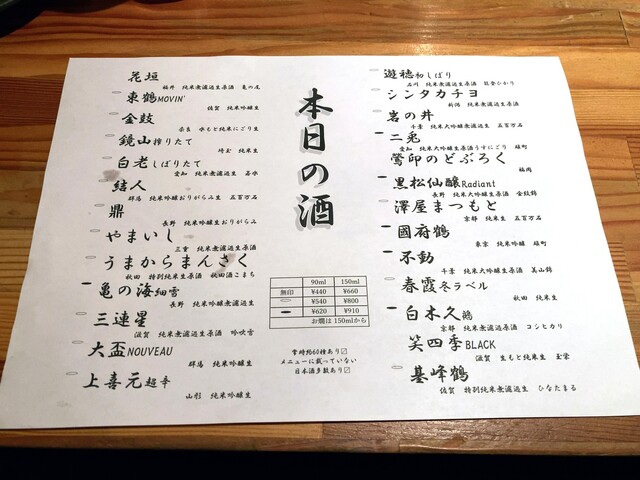 本日の酒
遊穂初しぼり
石川 純米無濾過生原酒 能登ひかり
シンタカチヨ
新潟 純米無濾過生原酒
岩の井
千葉 純米大吟醸無濾過生 五百万石
二兎
愛知 純米大吟醸無濾過生原酒うすにごり 雄町
鶯印のどぶろく
福岡
黒松仙醸Radiant
長野 純米大吟醸無濾過生原酒 金紋錦
澤屋まつもと
京都 純米生 五百万石
國府鶴
東京 純米吟醸 雄町
不動
千葉 純米大吟醸無濾過生原酒 美山錦
春霞冬ラベル
秋田 純米生
白木久
京都 純米無濾過生原酒 コシヒカリ
笑四季BLACK
滋賀 生もと純米生 玉栄
基峰鶴
佐賀 特別純米無濾過生 ひなたまる
花垣
福井 純米無濾過生原酒 亀の尾
東鶴MOVIN'
佐賀 純米吟醸生
金鼓
奈良 水もと純米にごり生
鏡山搾りたて
埼玉 純米生
白老しぼりたて
愛知 純米無濾過生 若水
結人
群馬 純米吟醸おりがらみ生 五百万石
鼎
長野 純米吟醸生おりがらみ
やまいし
三重 純米無濾過生原酒
うまからまんさく
秋田 特別純米生原酒 秋田酒こまち
亀の海細雪
長野 純米吟醸無濾過生
三連星
滋賀 純米無濾過生原酒 吟吹雪
大盃NOUVEAU
群馬 純米吟醸生
上喜元超辛
山形 純米吟醸生
90ml 150ml
無印 ¥440 ¥660
¥540 ¥800
¥620 ¥910
お燗は150mlから
常時約60種あり☑
メニューに載っていない
日本酒多数あり☑